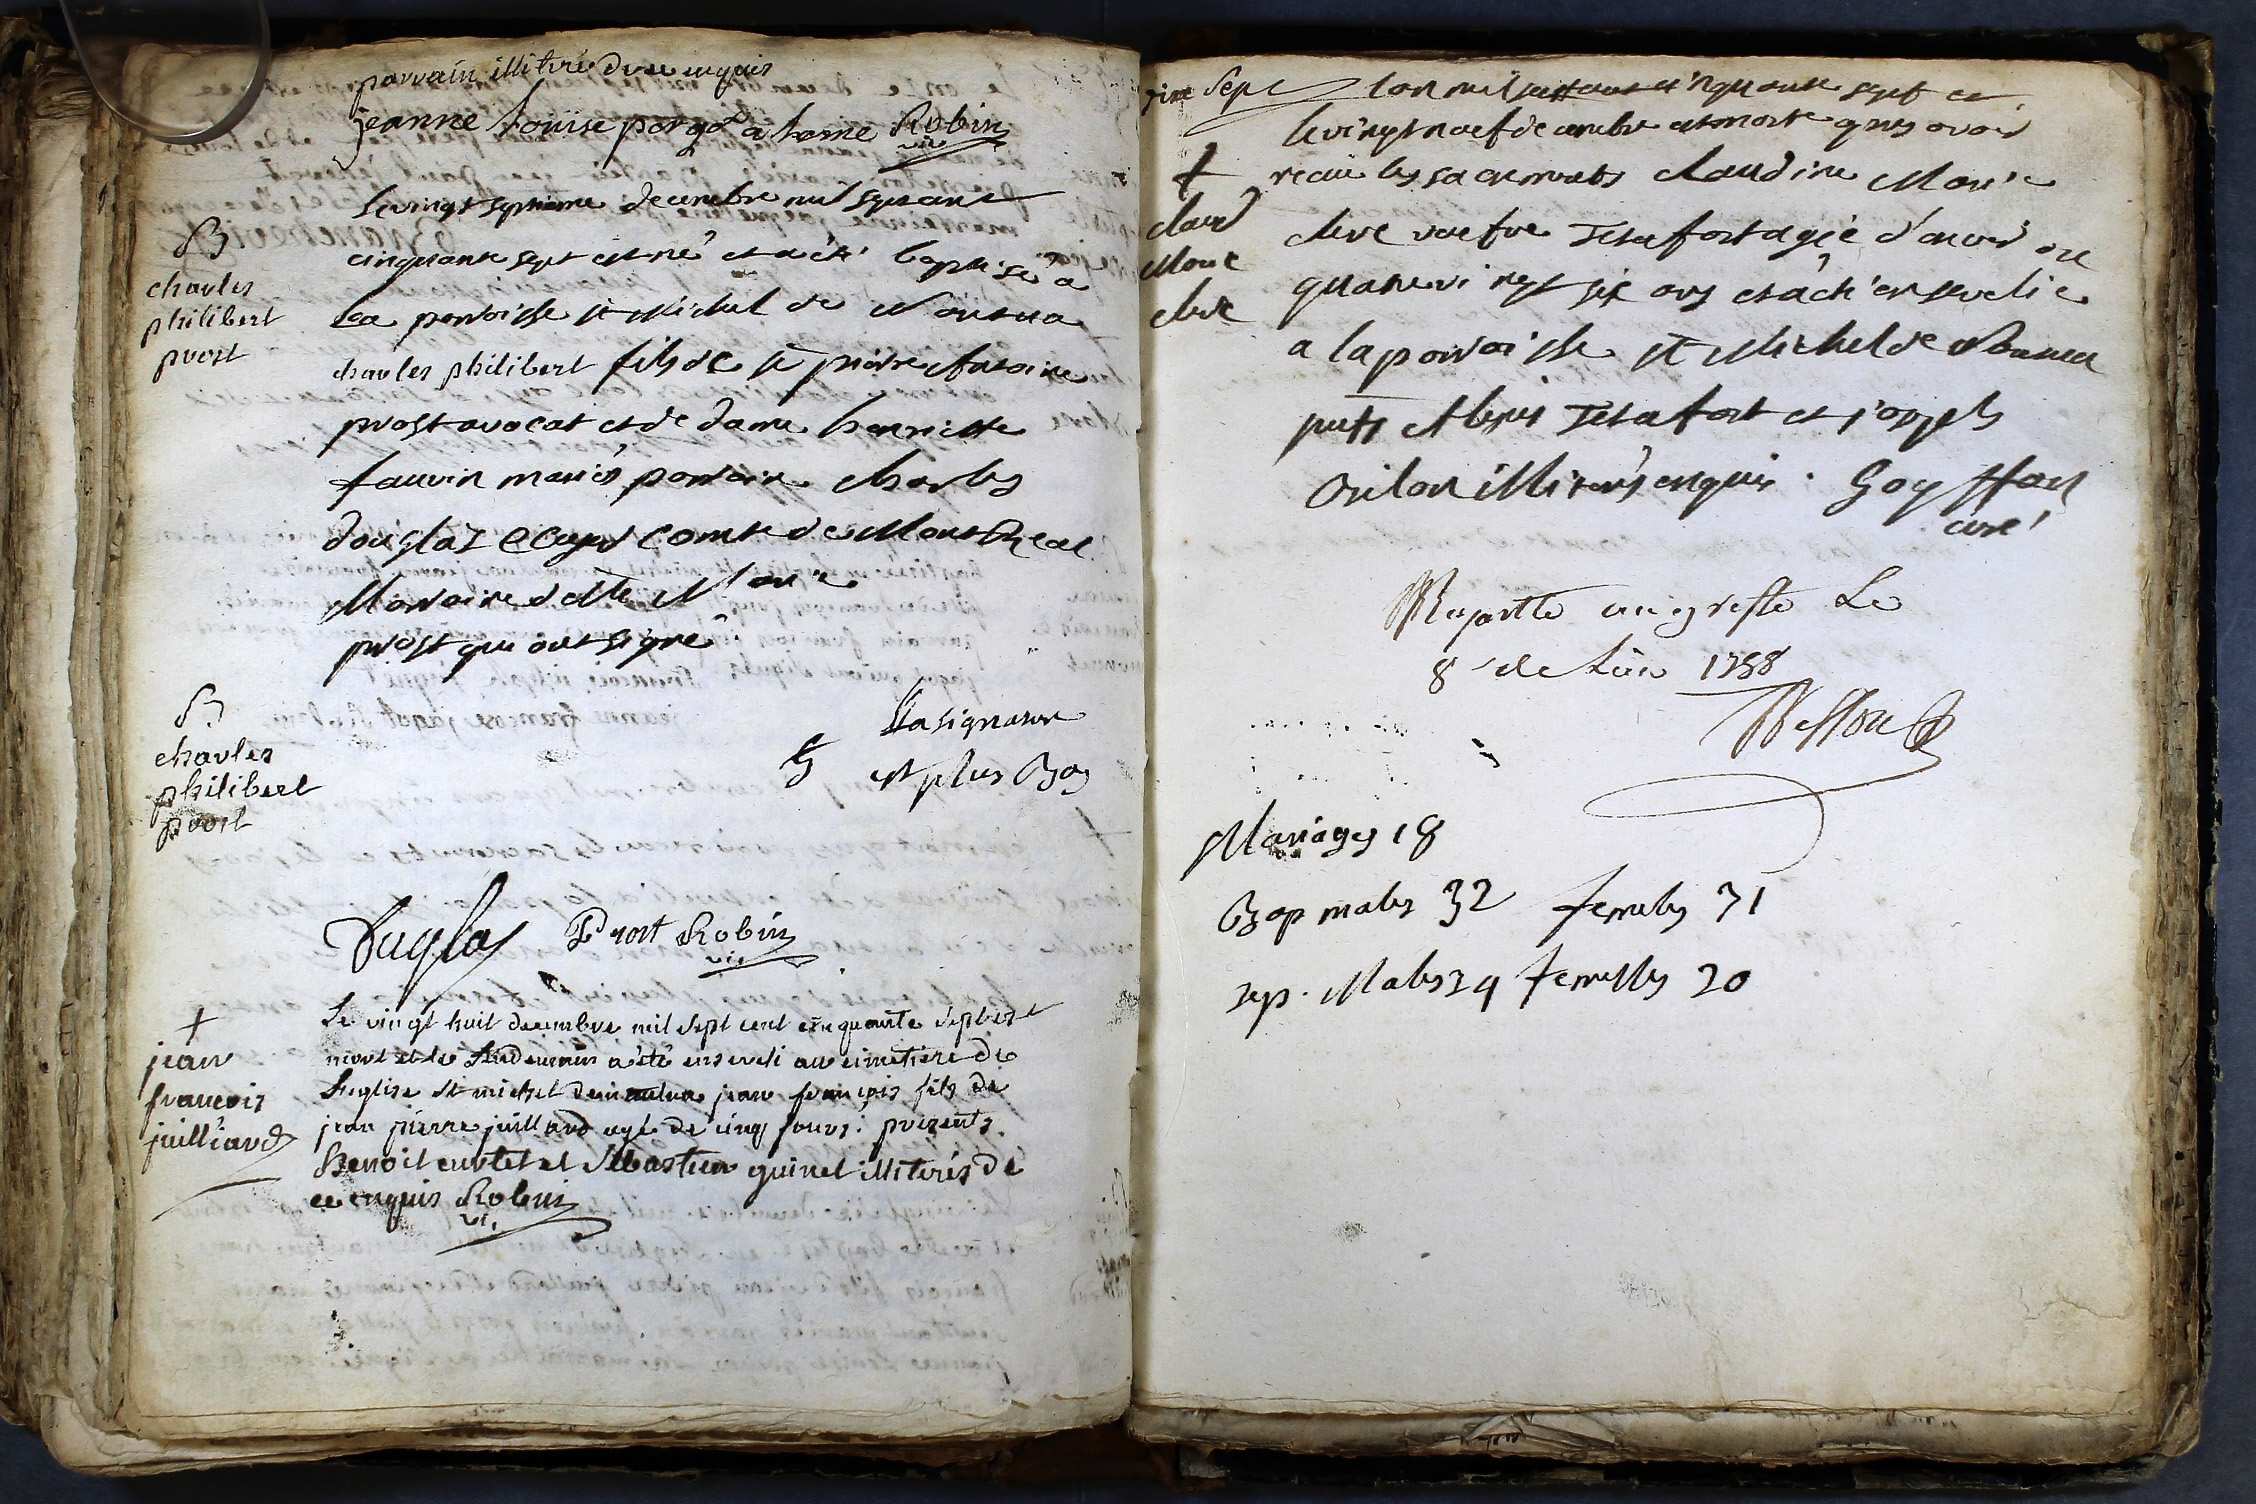 parrain illiteré de ce enquis
jeanne Louise porgot a Laine Robin
vic
B
charles
philibert
prost
Le vingt septieme decembre mil sept cent
cinquante sept est né et a été baptisé a
la parroisse st Michel de Nantua
charles philibert fils de sr pierre Antoine
prost avocat et de dame henriette
fauvin mariés parrain charles
douglas ecuyer comte de MontReal
Marraine dlle Marie
prost qui ont signé
La signature
est plus Bas
B
charles
philibert
prost
Duglas Prost Robin
vic
+
jean
francois
juilliard
Le vingt huit decembre mil sept cent cinquante sept est
mort et le lendemain a été enseveli au cimetiere de
l'eglise st michel de nantua jean françois fils de
jean pierre juilland agé de cinq jours: presents
Benoit curtet et Sebastien guinet illiterés de
ce enquis Robin
vic
Sept
L'an mil sept cent cinquante sept et
le vingt neuf decembre est morte apres avoir
+
claud
Marie
clerc
recüe les sacrements claudine Marie
clerc veufve Tetafort agée d'environ
quatrevingt six ans et a été ensevelie
a la parroisse st Michel de Nantua
pnts Alexis Tetafort et joseph
orilon illiterés enquis. Goyffon
curé
Raportté au greffe Le
8e de Juin 1758
Besson
Mariages 18
Bap males 32 femelles 31
sep. Males 24 femelles 20